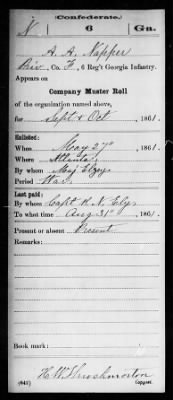 (Confederate.)
N 6 Ga.
A. A. Napper
Priv, Co. F, 6 Reg't Georgia Infantry.
Appears on
Company Muster Roll
of the organization named above,
for Sept & Oct, 1861.
Enlisted:
When May 27", 1861.
Where Atlanta
By whom Maj Elzey
Period War
Last paid:
By whom Capt R. N. Ely
To what time Aug 31st, 1861.
Present or absent Present
Remarks:
Book mark:
H. W. Throckmorton
(641) Copyist.